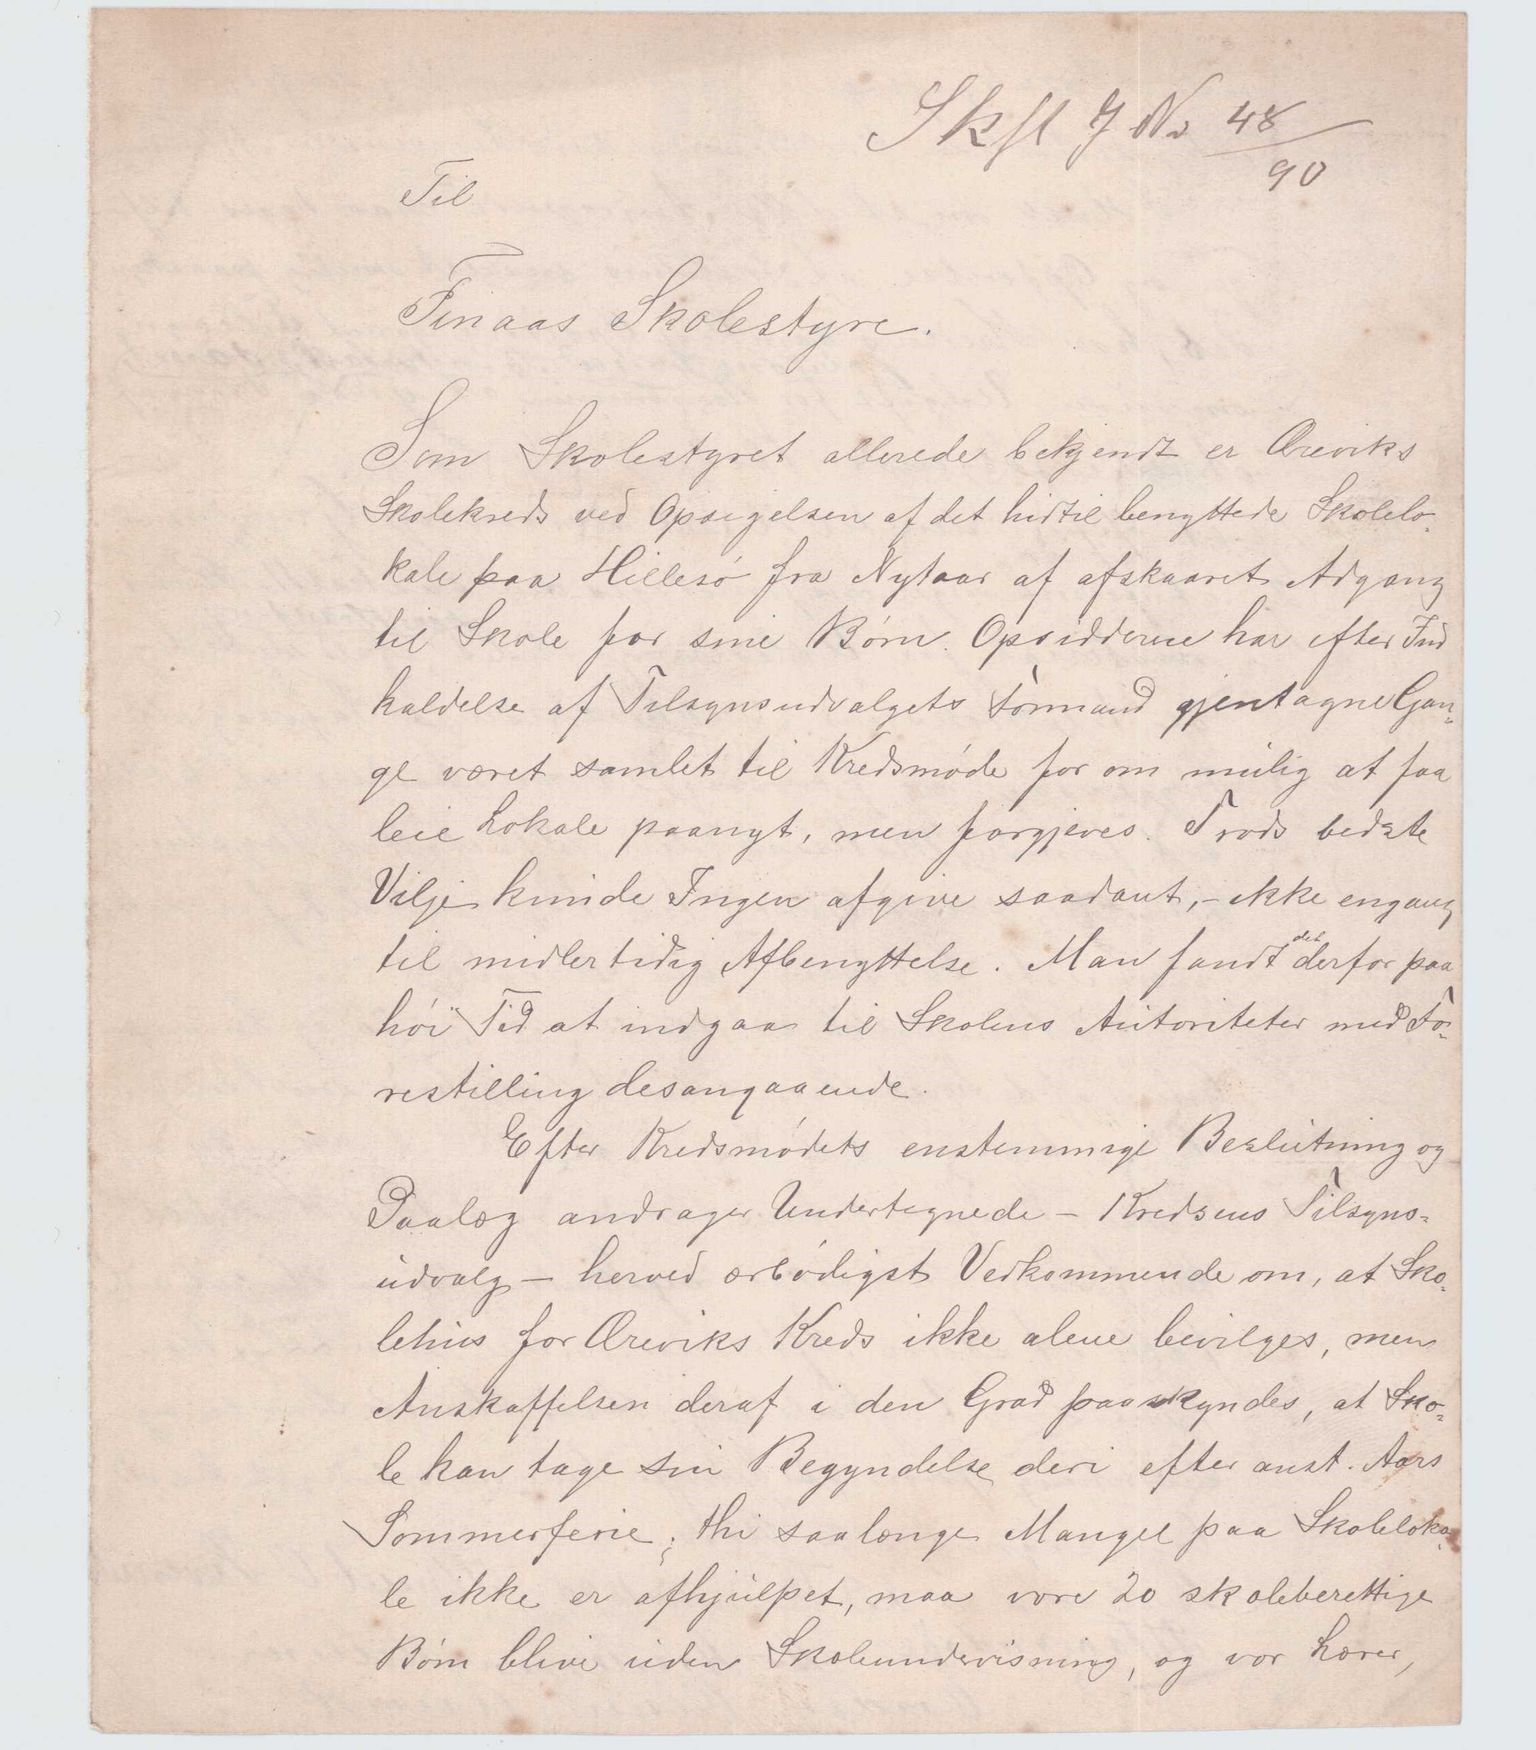 Skst J No 48/90
Til
Finaas Skolestyre.
Som Skolestyret allerede bekjendt er Œreviks
Skolekreds ved Opsigelsen af det hidtil benyttede Skolelo-
kale paa Hillesö fra Nytaar af afskaaret Adgang
til Skole for sine Börn. Opsidderne har efter Ind
kaldelse af Tilsynsudvalgets Formand gjentagne Gan-
ge været samlet til Kredsmöde for om mulig at faa
leie Lokale paanyt, men forgjæves. Trods bedste
Vilje kunde Ingen afgive saadant, - ikke engang
til midlertidig Afbenyttelse. Man fandt det derfor paa
höi Tid at indgaa til Skolens Autoriteter med Fo-
restilling desangaaende.
Efter Kredsmödets enstemmige Beslutning og
Paalæg andrager Undertegnede - Kredsens Tilsyns-
udvalg - herved ærbödigst Vedkommende om, at Sko-
lehus for Œreviks Kreds ikke alene bevilges, men
Anskaffelsen deraf i den Grad paaskyndes, at Sko-
le kan tage sin Begyndelse deri efter anst. Aars
Sommerferie; thi saalænge Mangel paa Skoleloka-
le ikke er afhjulpet, maa vore 20 skoleberettige
Börn blive uden Skoleundervisning, og vor Lærer,